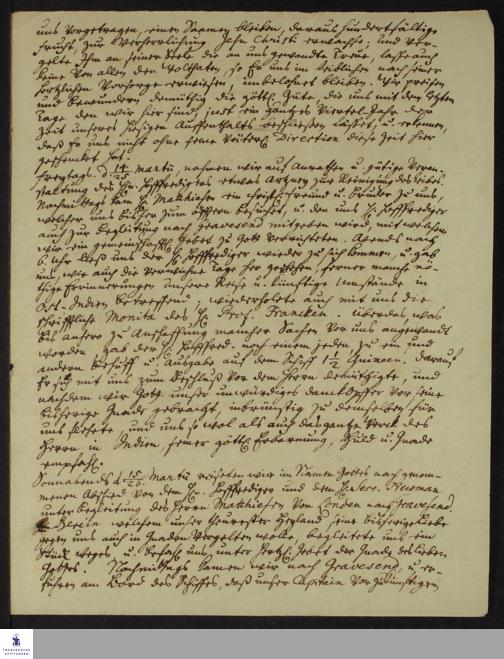 uns vorgetragen, einen Saamen bleiben, daraus hundertfältige
Frucht, zur Verherrlichung Jesu Christi erwachse; und ver-
gelte Ihm an seiner Seele die an uns gewandte Treue, lasse auch
keine von allen den Wolthaten, so Er uns in nach seiner
hertzlichen Vorsorge erwiesen, unbelohnet bleiben. Wir preisen
und bewundern demüthig die göttl. Güte, die uns mit dem letzten
Tage den wir hier sind, just ein gantzes Viertel-Jahr der
Zeit unseres hiesigen Auffenthalts beschließen lässet, u. erkennen,
daß Er uns nicht ohne seine Direction diese Zeit hier
geschencket hat.
Freytags d. 14/25 Martii, nahmen wir auf Anrathen u. gütige Veran-
staltung des Hn. Hoffpredigers etwas Artzney zur Reinigung des Leibes.
Nachmittags kam H. Matthiesen ein christl. Freund u. Bruder zu uns,
welcher uns bisher zum öfftern besuchet, u. den uns H. Hoffprediger
auch zur Begleitung nach Gravesend mitgeben wird, mit welchem
wir ein gemeinschaftl. Gebet zu Gott verrichteten. Abends nach
6. Uhr ließ uns der H. Hoffprediger wieder zu sich kommen, u. gab
uns, wie auch die vorige Tage her geschehen, ferner manche nö-
thige Erinnerungen unsere Reise u. künftige Umstände in
Ost-Indien betreffend; wiederholete auch mit uns die
schrifftliche Monita des H. Prof. Francken. Überdas, was
bis anhero zu Anschaffung mancher Sachen vor uns angewandt
worden, gab der H. Hoffpred. noch einem jeden zu ein und
andern behuff u. Ausgabe auf dem Schiff 1 1/2 Guineen. Darauf
Er sich mit uns zum Beschluß vor dem Herrn demüthigte, und
nachdem wir Gott unser unwürdiges Danckopffer vor seine
bisherige Gnade gebracht, inbrünstig zu demselben für
uns flehete, und uns so wol als auch das gantze Werck des
Herrn in Indien, seiner göttl. Erbarmung, Huld u. Gnade
empfahl.
Sonnabends d. 15/26 Martii reiseten wir im Namen Gottes nach genom-
menen Abschied von dem Hn. Hoffprediger und dem Newman,
unter Begleitung des Herrn Matthiesen von London nach Gravesend.
welchem unser theurester Heyland seine bisherige Liebe
gegen uns auch in Gnaden vergelten wolle, begleitete uns ein
Stück weges, u. befahl uns, unter hertzl. Gebet der Gnade des lieben
Gottes. Nachmittags kamen wir nach Gravesend, u. er-
fuhren am Bord des Schiffes, daß unser Capitain